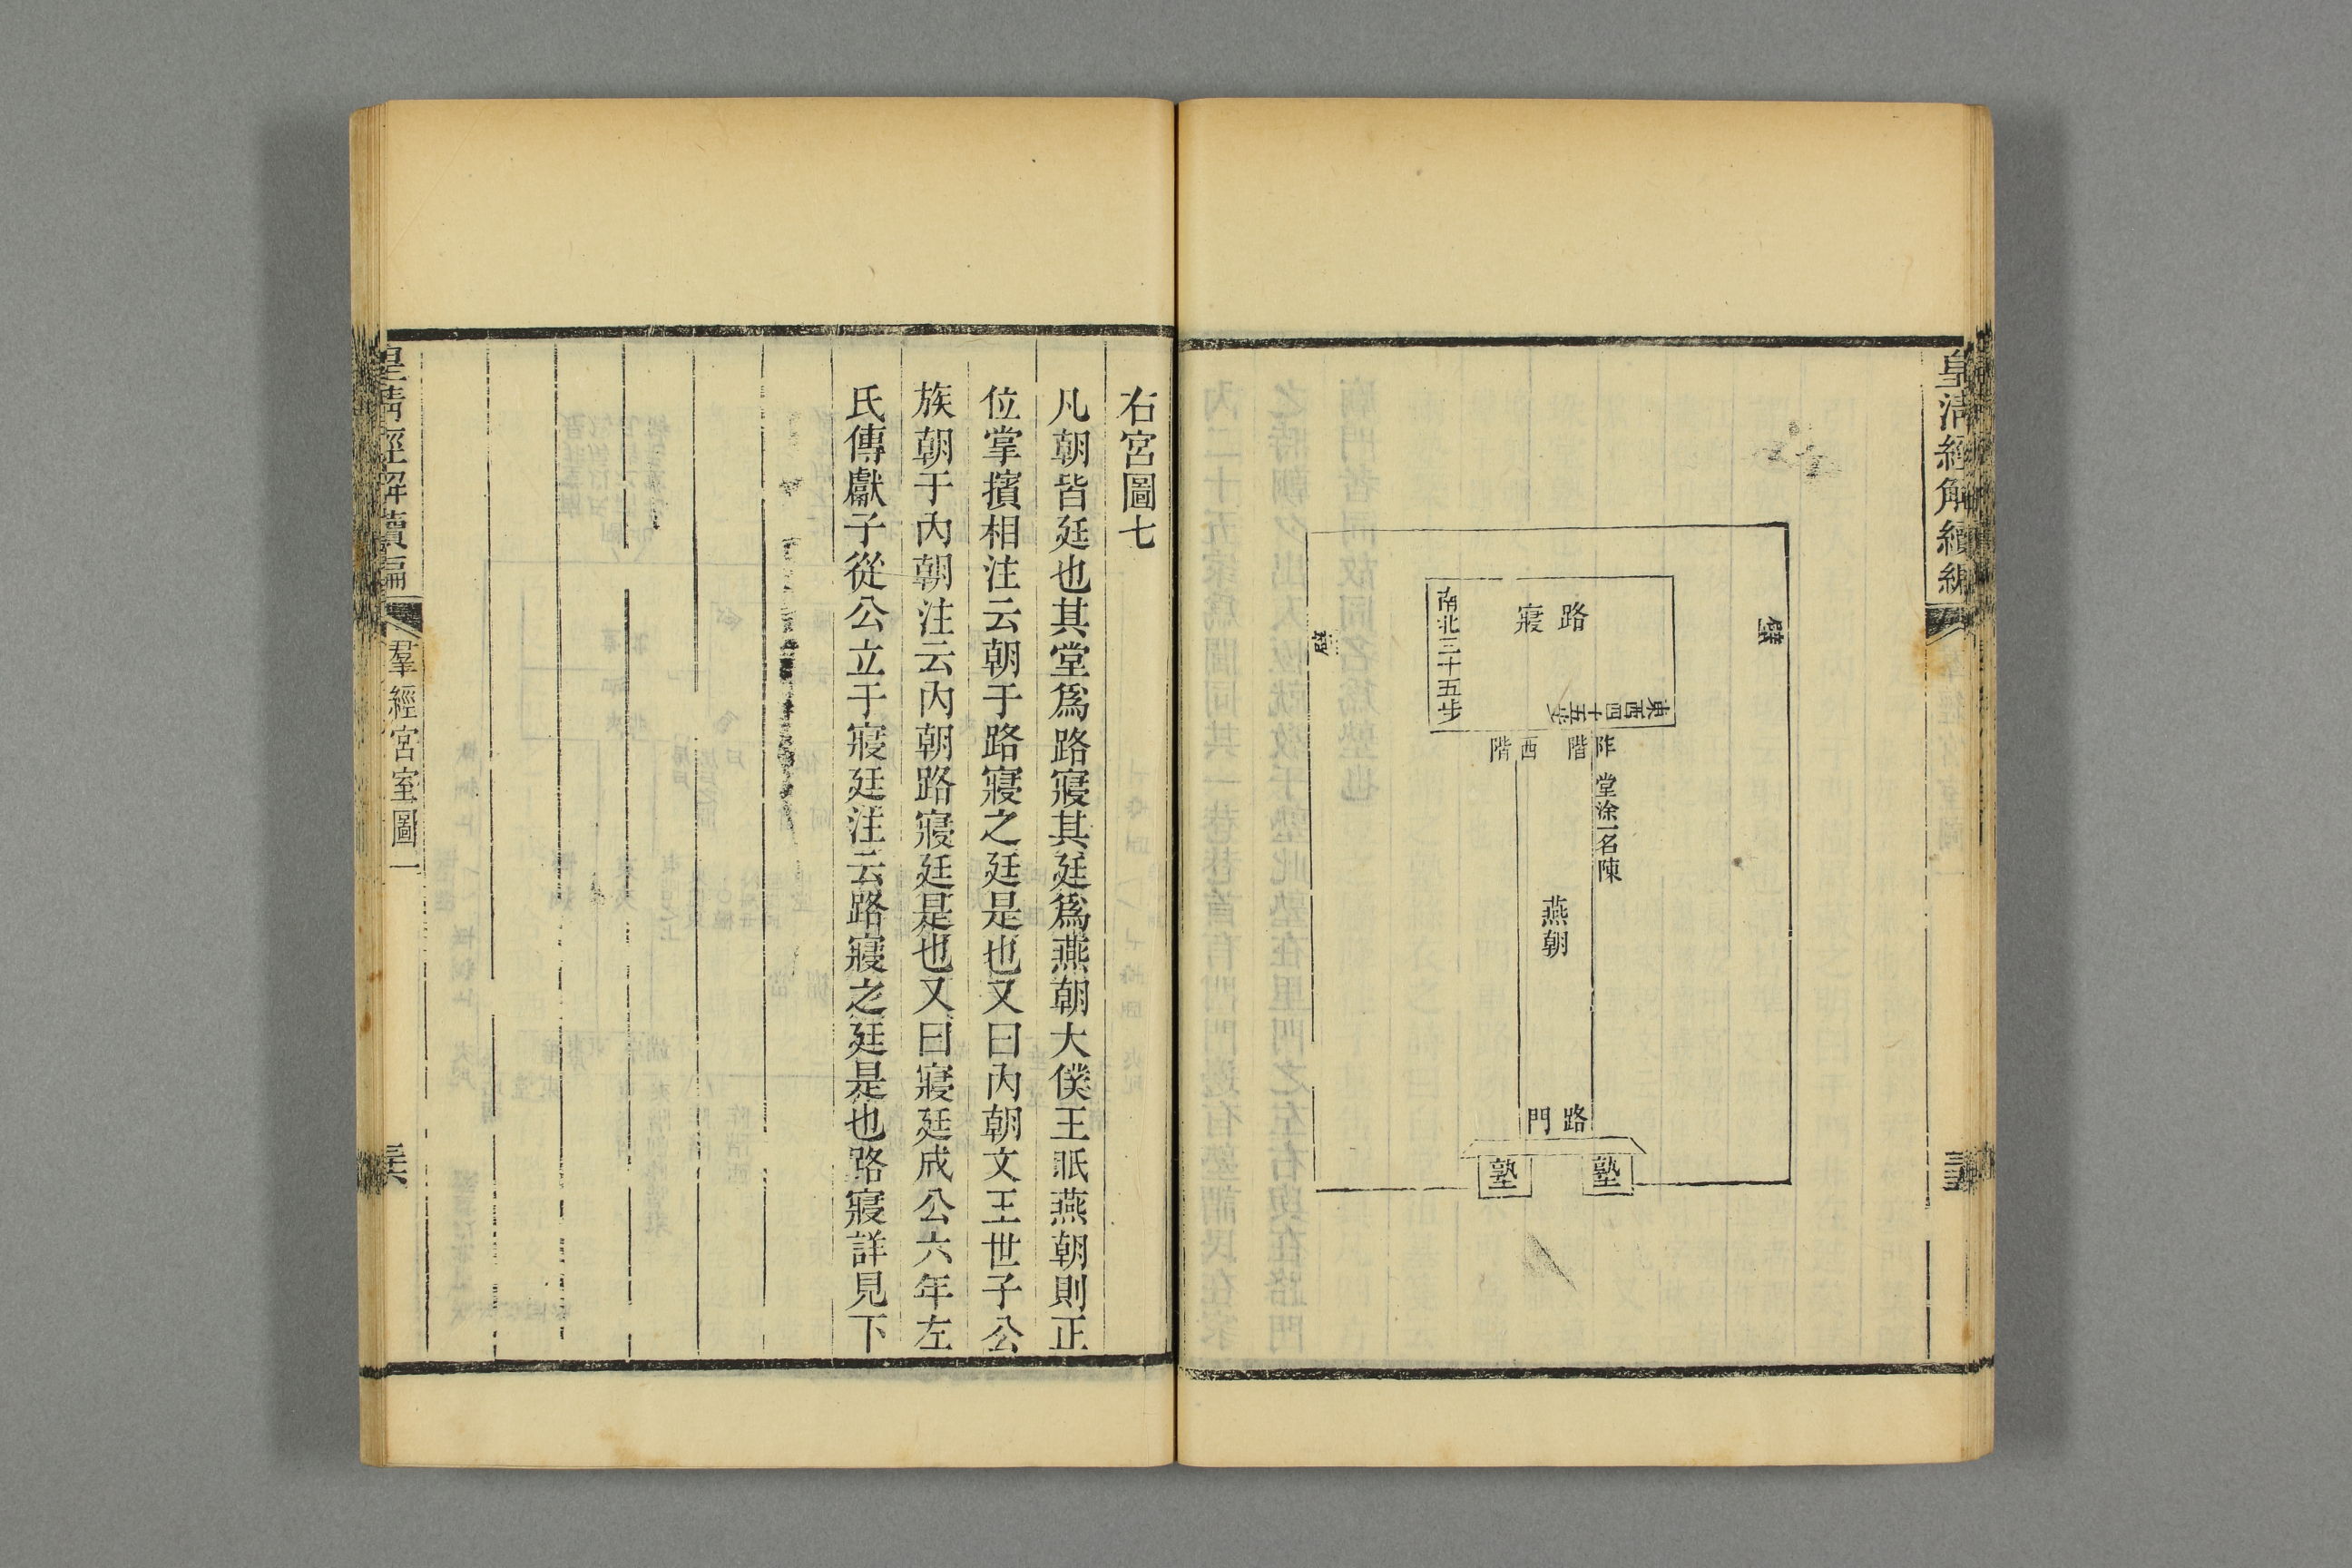 皇清經解續編
壁
路寢
東西四十五步
南北三十五步
阼階
西階
堂涂一名陳
燕朝
路門
塾
塾
右宮圖七
凡朝皆廷也其堂爲路寢其廷爲燕朝大僕王眡燕朝則正
位掌擯相注云朝于路寢之廷是也又曰內朝文王世子公
族朝于內朝注云內朝路寢廷是也又曰寢廷成公六年左
氏傳獻子從公立于寢廷注云路寢之廷是也路寢詳見下
皇清經解續編
羣經宮室圖一